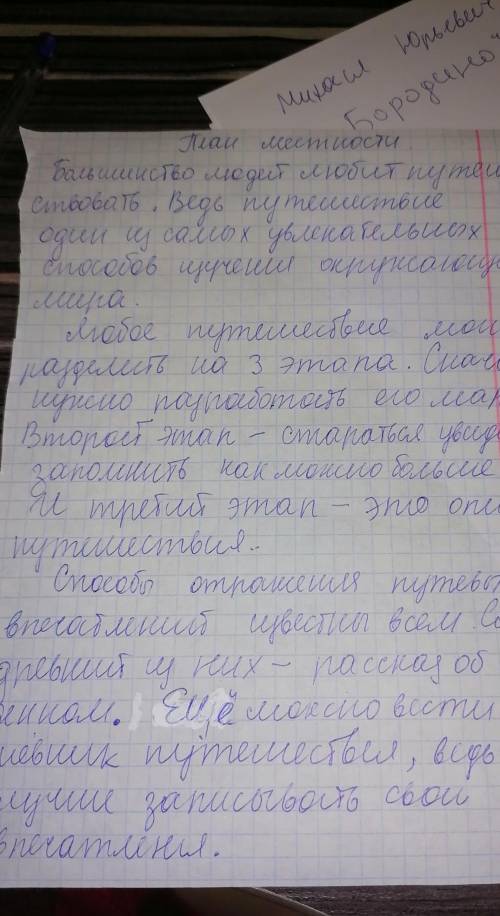 Михаил Юрьевич
Бородино"
План местности
Большинство людей любит путеш
ствовать. Ведь путешествие
один из самых увлекательных
способов изучения окружающе
мира.
Любое путешествие мож
разделить на 3 этапа. Снача
нужно разработать его мар
Второй этап – стараться увиде
запомнить как можно больше
И третий этап – это опи
путешествия..
Способы отражения путевы
впечатлений известны всем. Са
древний из них – рассказ об
енном. Ещё можно вести
невник путешествия, ведь
лучше записывать свои
впечатления.